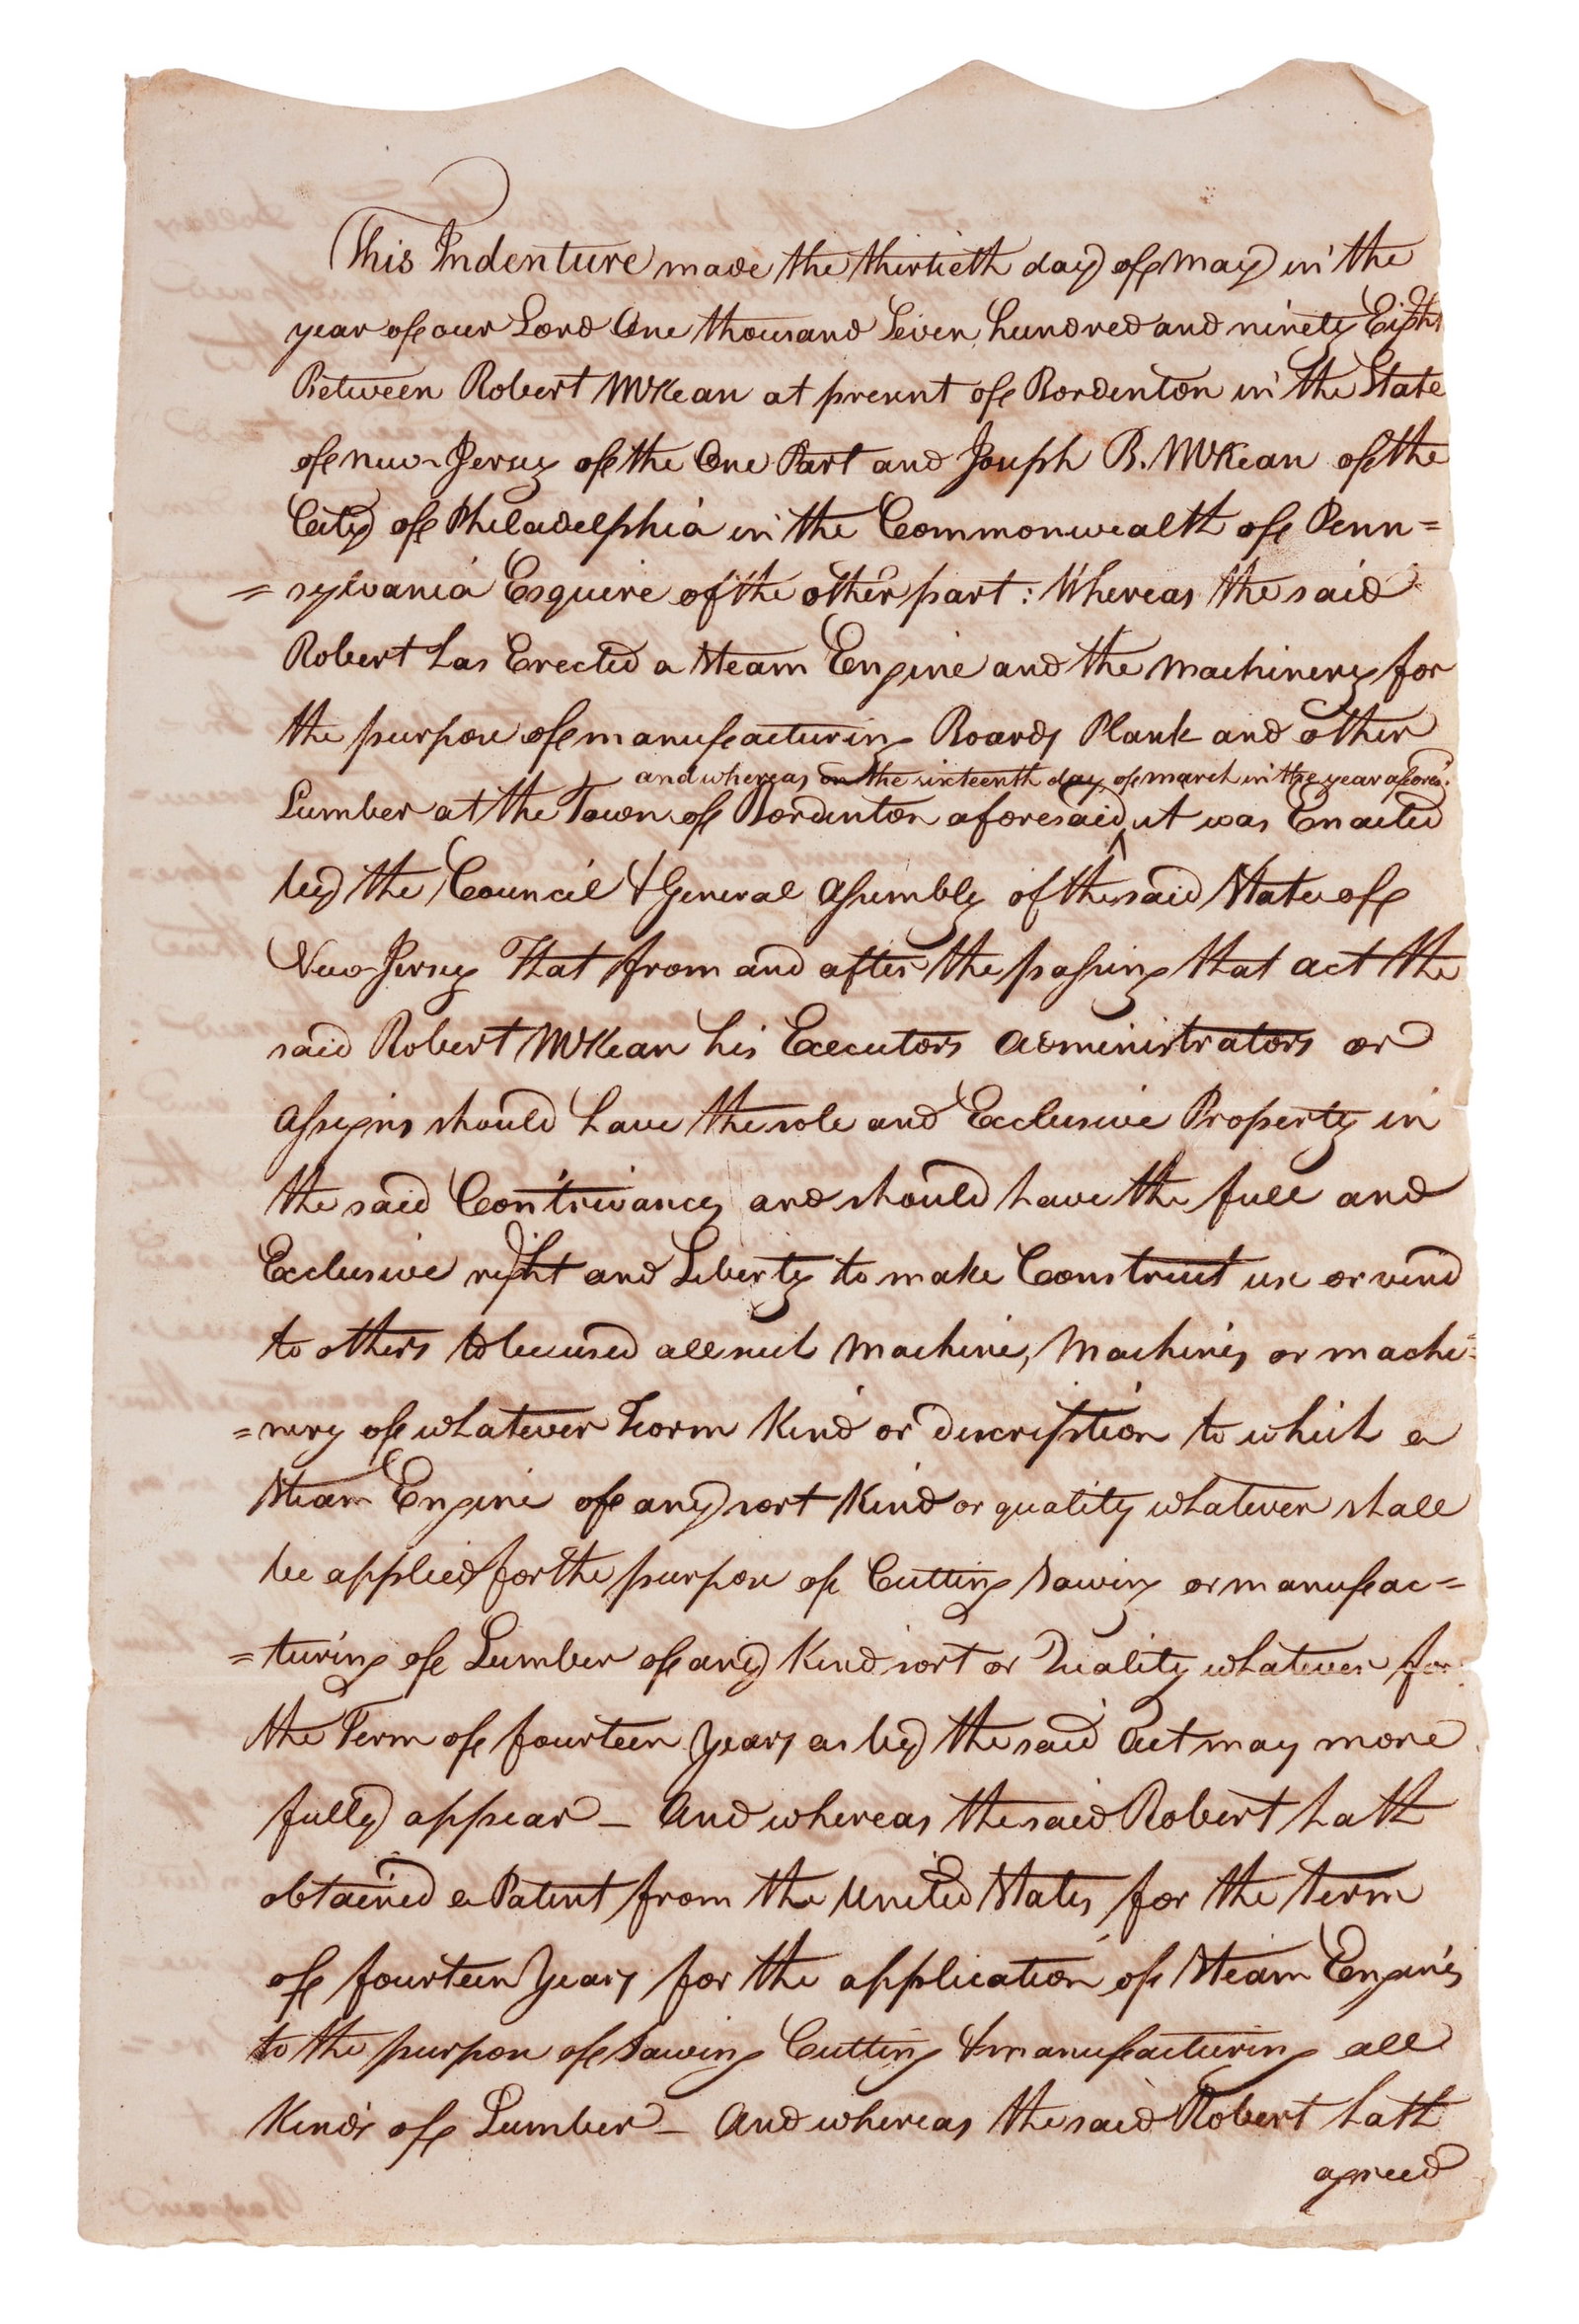 This Indenture made the thirtieth day of May in the
year of our Lord One thousand Seven hundred and ninety Eight
Between Robert McKean at present of Bordenton in the State
of new-Jersey of the One Part and Joseph B. McKean of the
City of Philadelphia in the Commonwealth of Penn=
=sylvania Esquire of the other part: Whereas the said
Robert has Erected a Steam Engine and the Machinery for
the purpose of manufacturing Boards Plank and other
and whereas on the sixteenth day of march in the year afores.d
Lumber at the Town of Bordenton aforesaid ^ it was Enacted
by the Council & General Assembly of the said State of
New-Jersey That from and after the passing that act the
said Robert McKean his Executors Administrators or
Assigns should have the sole and Exclusive Property in
the said Contrivance, and should have the full and
Exclusive right and Liberty to make Construct use or vend
to others to be used all such Machine, Machines or machi=
=nery of whatever Form Kind or description to which a
Steam Engine of any sort Kind or quality whatever shall
be applied for the purpose of Cutting Sawing or manufac=
=turing of Lumber of any Kind sort or Quality whatever for
the Term of fourteen Years as by the said Act may more
fully appear – And whereas the said Robert hath
obtained a Patent from the United States for the term
of fourteen Years for the application of Steam Engines
to the purpose of Sawing Cutting & manufacturing all
Kinds of Lumber – And whereas the said Robert hath
agreed